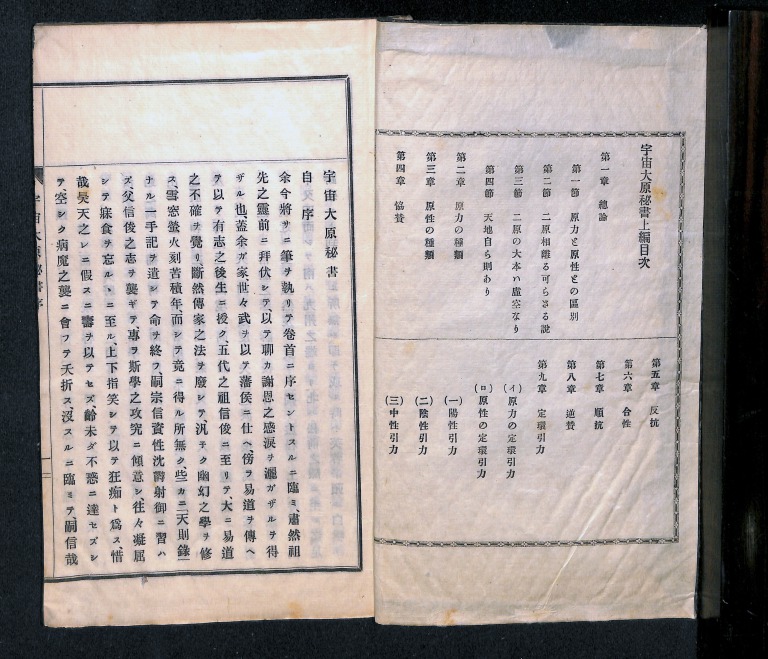 宇宙大原秘書上編目次
第一章 總論
第一節 原力と原性との區別
第二節 二原相離る可らざる說
第三節 二原の大本は虛空なり
第四節 天地自ら則あり
第二章 原力の種類
第三章 原性の種類
第四章 協賛
第五章 反抗
第六章 合性
第七章 順抗
第八章 逆賛
第九章 定環引力
(イ)原力の定環引力
(ロ)原性の定環引力
(一)陽性引力
(二)陰性引力
(三)中性引力
宇宙大原秘書
自序
余今將サニ筆ヲ執リテ卷首ニ序セントスルニ臨ミ、肅然祖
先之靈前ニ拜伏シテ、以テ聊カ謝恩之感淚ヲ灑ガザルヲ得
ザル也、蓋余ガ家世々武ヲ以テ藩侯ニ仕ヘ、傍ヲ易道ヲ傳ヘ
テ以テ有志之後生ニ授ク、五代之祖信後ニ至リテ、大ニ易道
之不確ヲ覺リ、斷然傳家之法ヲ廢シテ、汎ク幽幻之學ヲ修
ス、雪窓螢火刻苦積年、而シテ竟ニ得ル所無ク、些カニ「天則錄」
ナル一手記ヲ遺シテ命ヲ終フ、嗣宗信資性沈欝射御ニ習ハ
ズ、父信後之志ヲ襲ギテ、專ヲ斯學之攻究ニ傾意シ、往々凝屈
シテ寐食ヲ忘ルヽニ至ル、上下指笑シテ以テ狂痴ト爲ス惜
哉昊天之レニ假スニ壽ヲ以テセズ、齡未ダ不惑ニ達セズシ
テ、空シク病魔之襲ニ會フテ夭折ス、沒スルニ臨ミテ、嗣信哉
宇宙大原秘書序